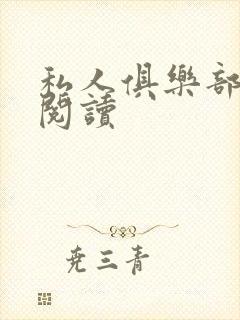 私人俱樂部
閱讀
尭三青